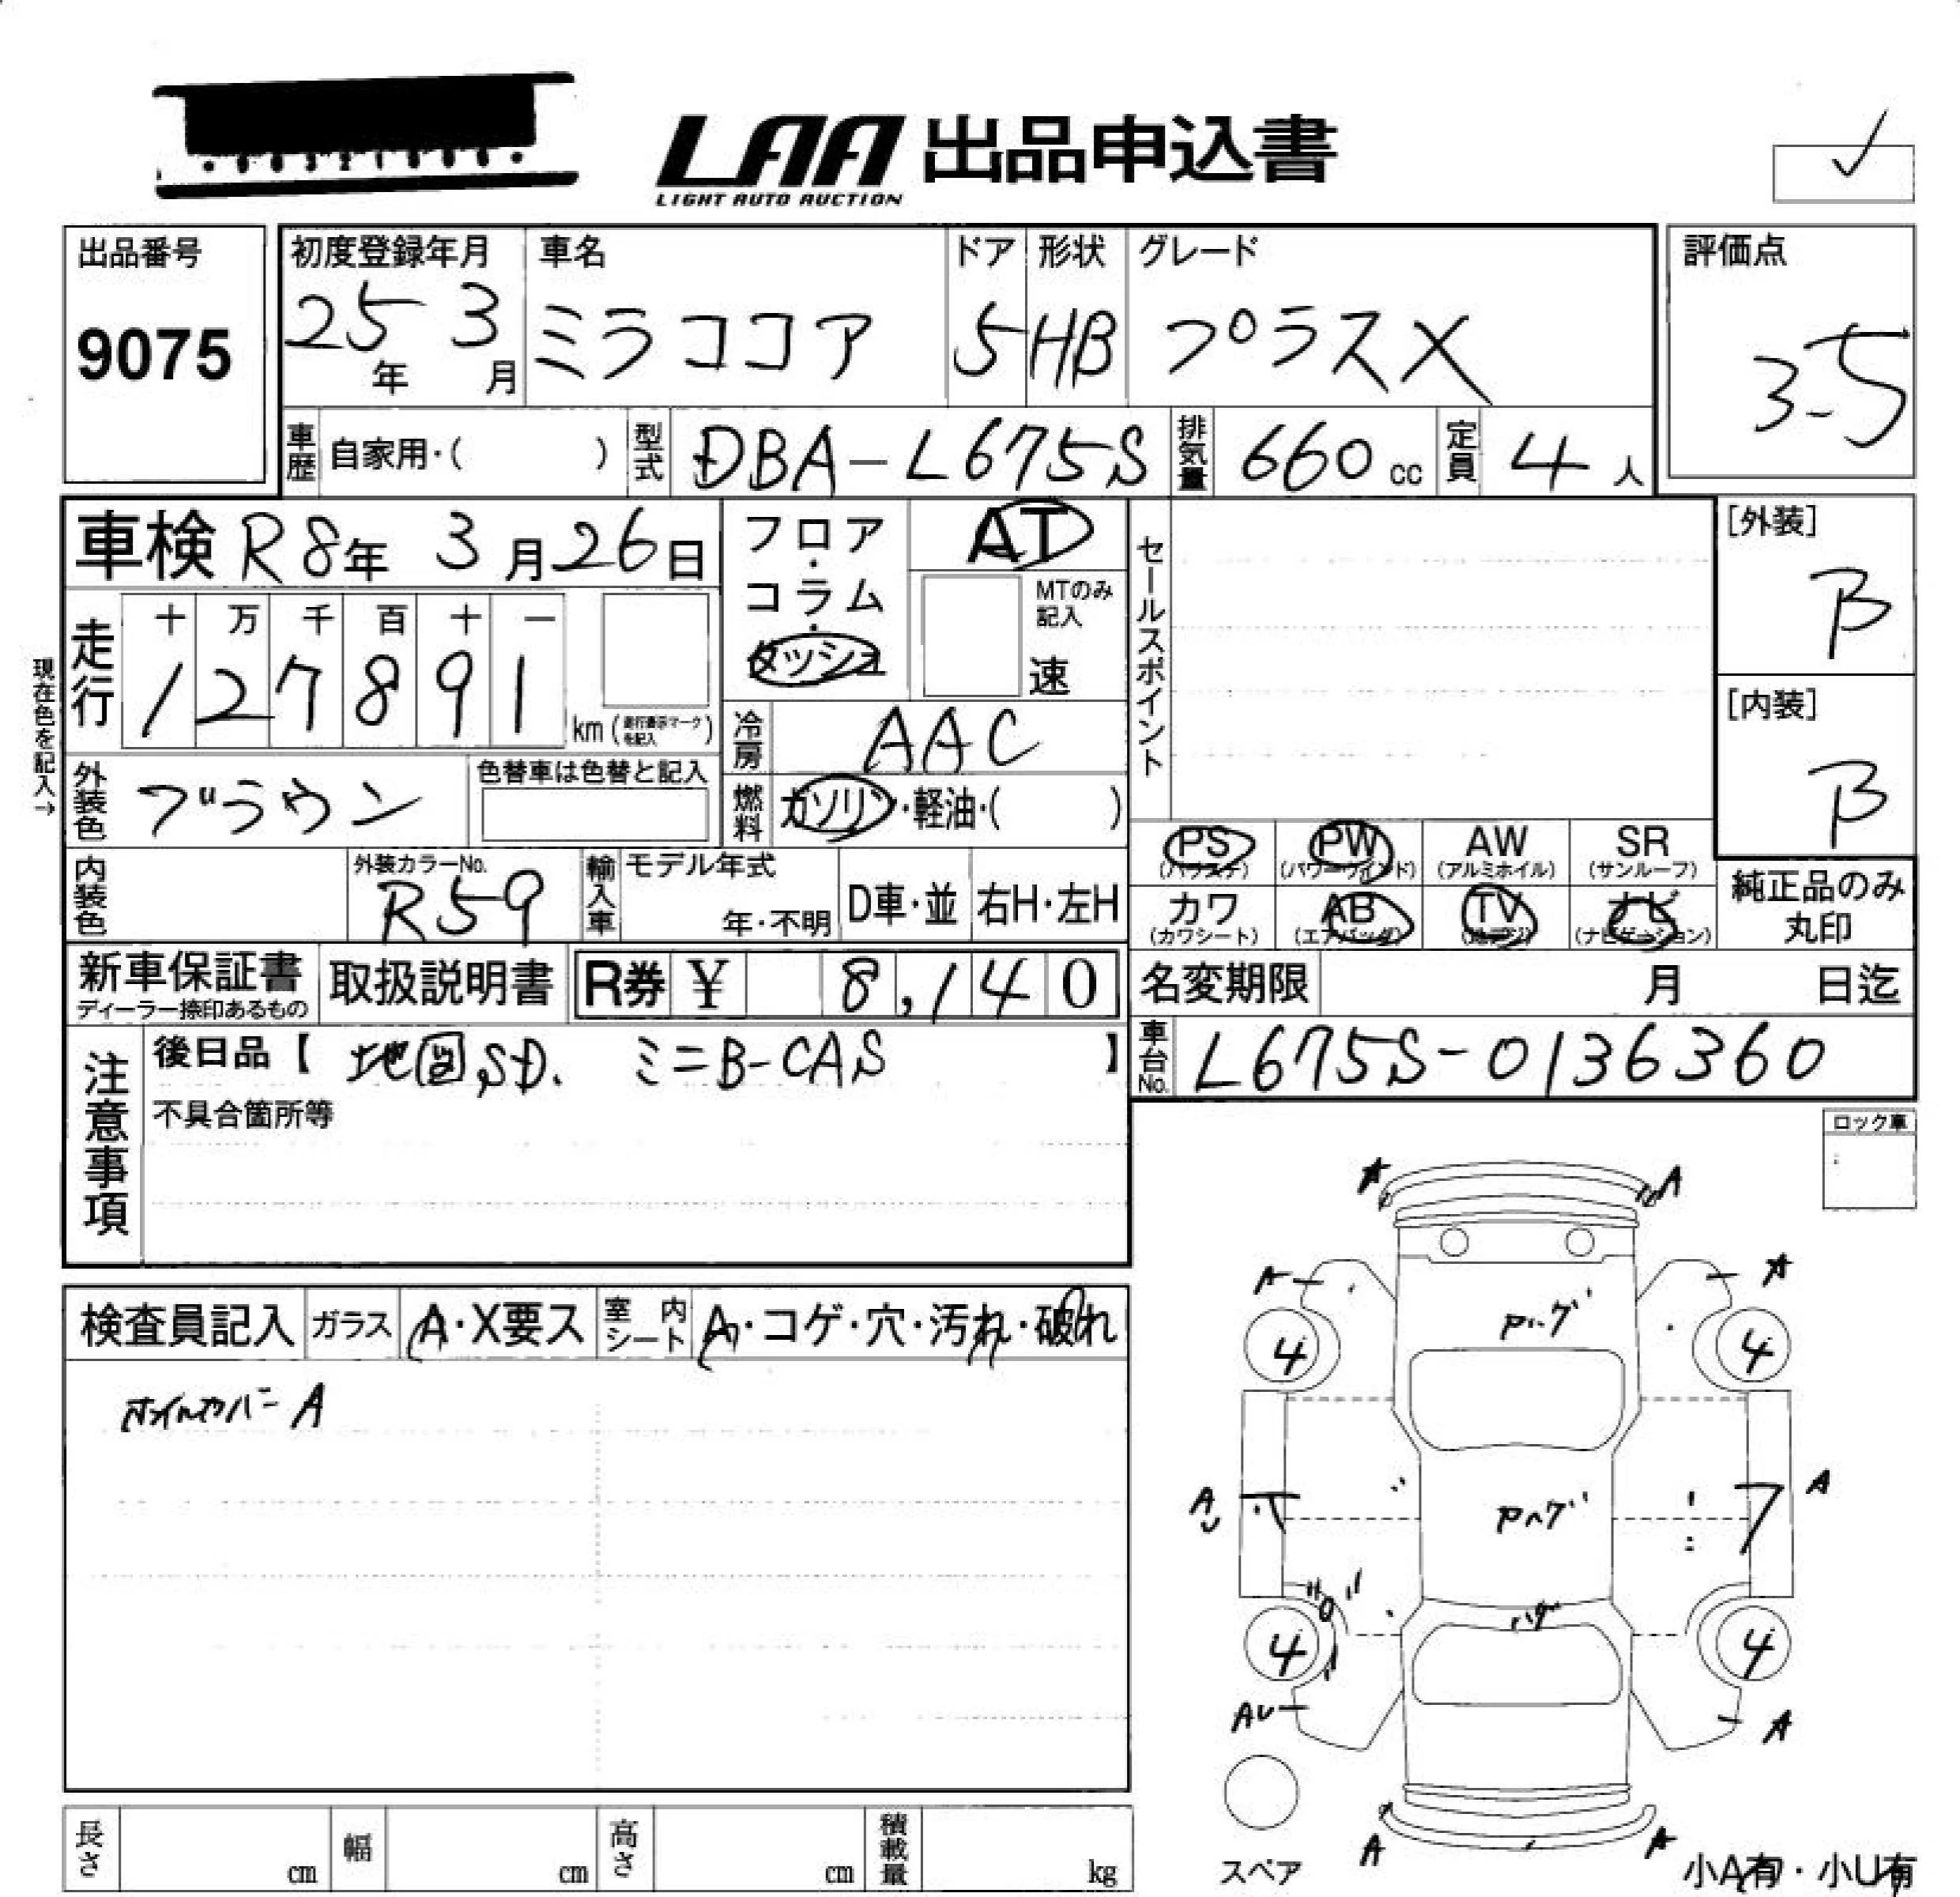 LAA 出品申込書
LIGHT AUTO AUCTION
出品番号
9075
初度登録年月
25年 3月
車名
ミラココア
ドア
5
形状
HB
グレード
プラスX
評価点
3.5
車歴 自家用・( )
型式 DBA-L675S
排気量 660 cc
定員 4人
車検 R8年 3月26日
フロア・コラム・ダッシュ
AT
MTのみ記入
速
セールスポイント
[外装]
B
[内装]
B
現在色を記入→
走行
十 万 千 百 十 一
1 2 7 8 9 1
km (走行表示マークを記入)
冷房 AAC
外装色 ブラウン
色替車は色替と記入
燃料 ガソリン・軽油・( )
内装色
外装カラーNo.
R59
輸入車
モデル年式
年・不明
D車・並
右H・左H
PS (パワステ)
PW (パワーウインド)
AW (アルミホイル)
SR (サンルーフ)
カワ (カワシート)
AB (エアバッグ)
TV (地デジ)
ナビ (ナビゲーション)
純正品のみ
丸印
新車保証書
ディーラー捺印あるもの
取扱説明書
R券 ¥ 8,140
名変期限 月 日迄
注意事項
後日品【 地図SD. ミニB-CAS 】
不具合箇所等
車台No. L675S-0136360
ロック車
検査員記入
ガラス A・X要ス
室内シート A・コゲ・穴・汚れ・破れ
ホイルカバー A
A A
A A
4 4
Pハゲ
A A
Pハゲ
ハゲ
4 4
AU A
A A
スペア
小A有・小U有
長さ cm
幅 cm
高さ cm
積載量 kg